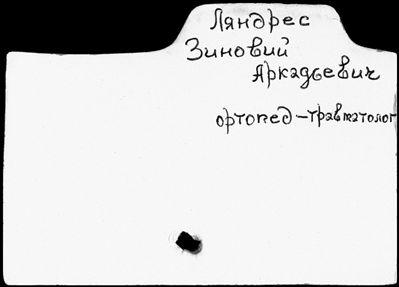 Ляндрес
Зиновий
Аркадьевич
ортопед-травматолог